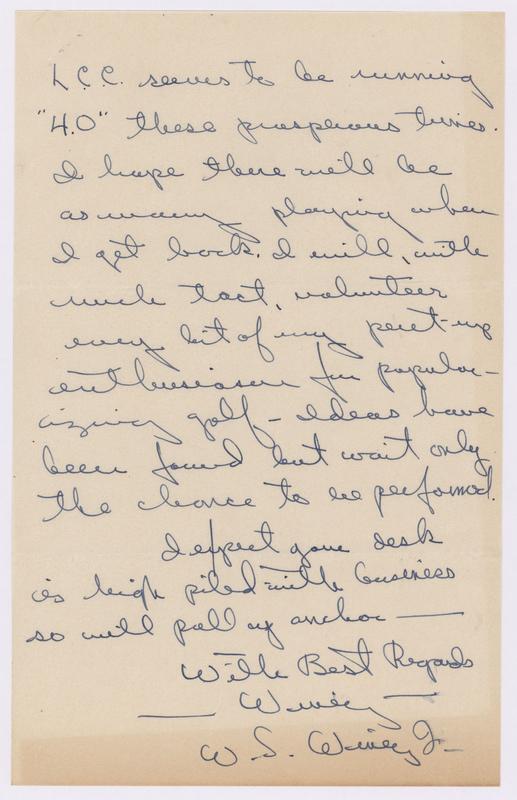 L.C.C. seems to be running
"4.0" these prosperous times.
I hope there will be
as many playing when
I get back. I will, with
much tact, volunteer
every bit of my pent-up
enthusiasm for popular-
izing golf - Ideas have
been found but wait only
the chance to be performed.
I expect your desk
is high piled with business
so will pull up anchor —
With Best Regards
— —
W. S. Jr.